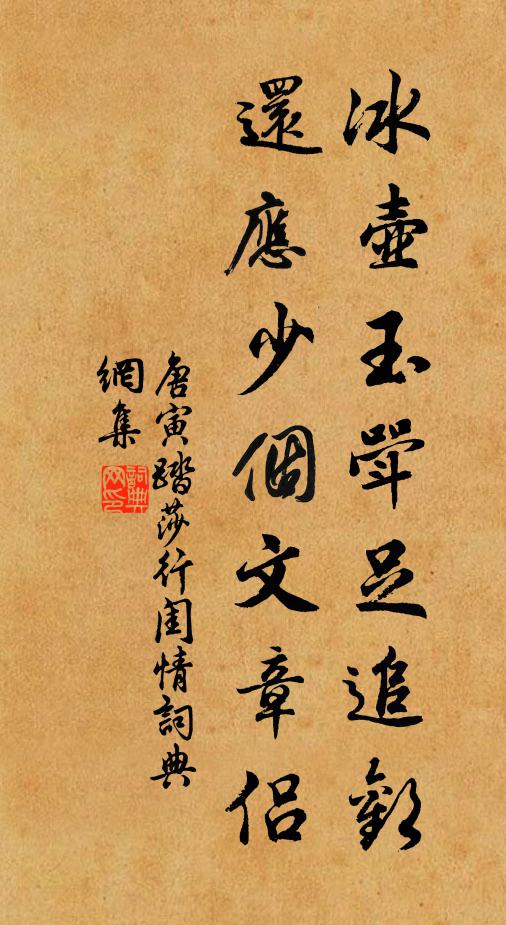 冰壺玉斝足追歡
還應少個文章侶
唐寅踏莎行閨情詞典
網集
詞典網印